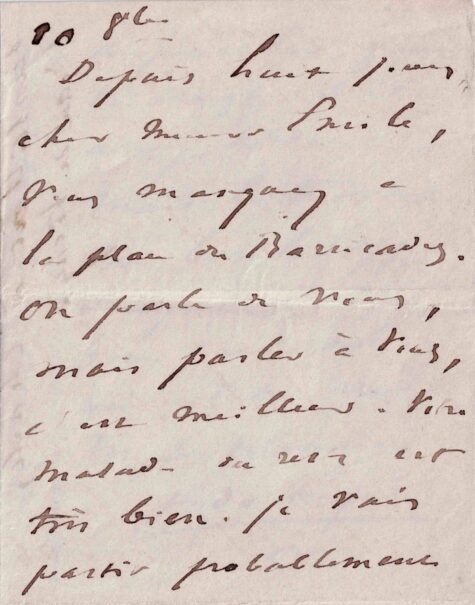 10 8bre
Depuis huit jours
cher Monsr Emile,
vous manquez à
la place des Barricades.
on parle de vous,
mais parler à vous,
c'est meilleur. Votre
malade du reste est
très bien. je vais
partir probablement